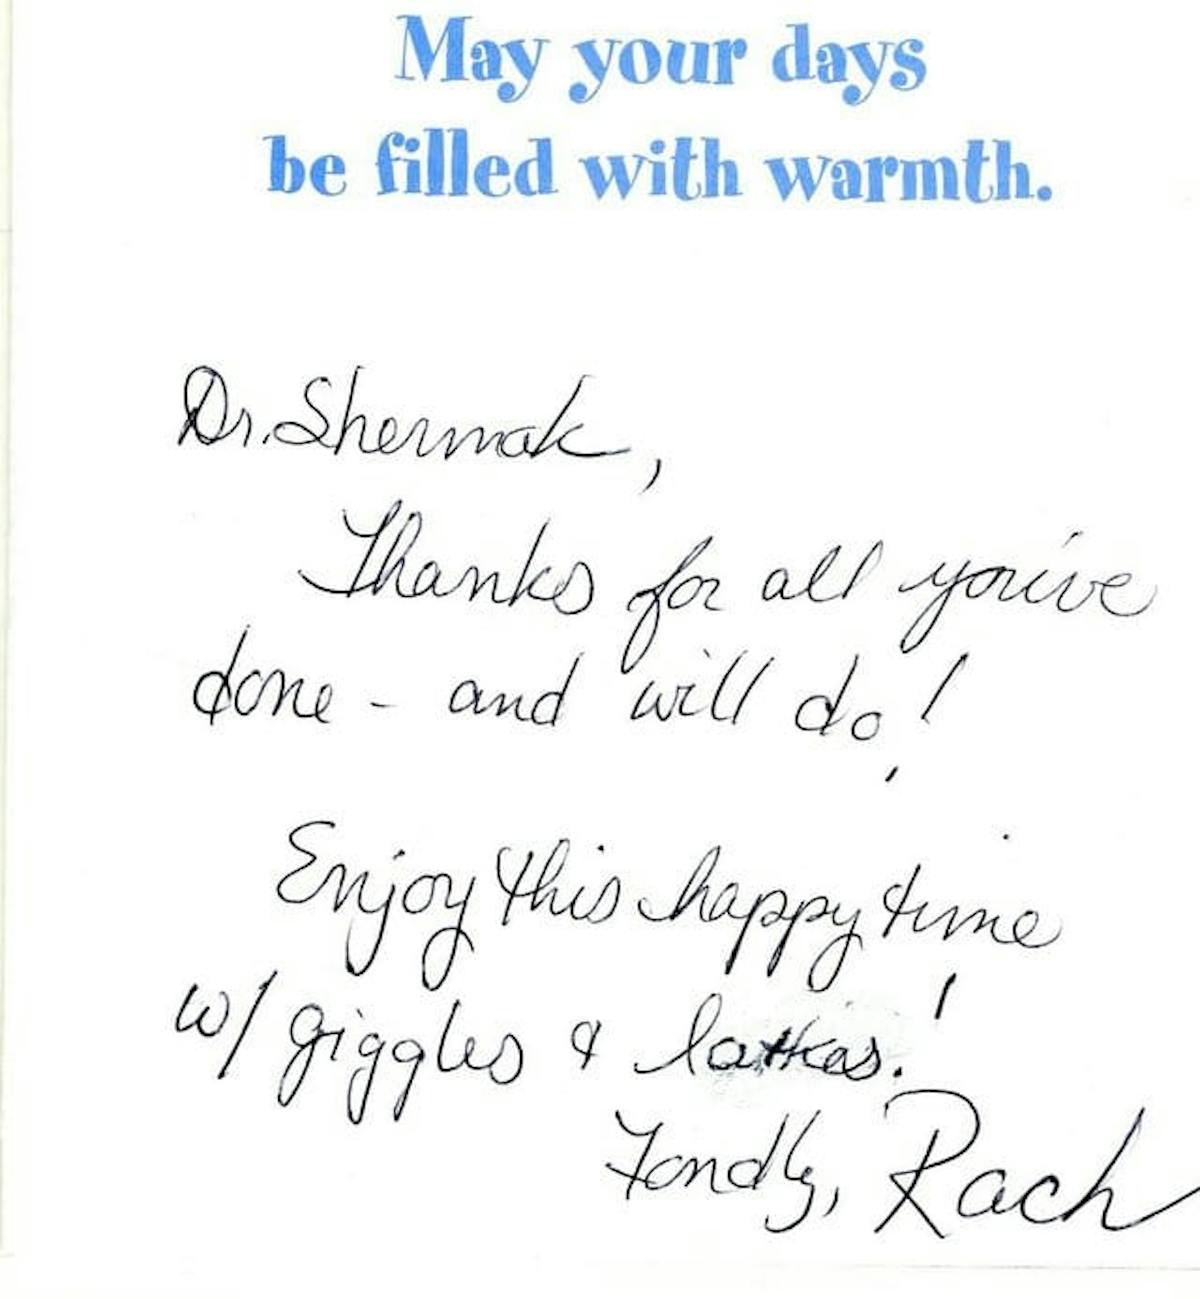 May your days
be filled with warmth.
Dr. Shermak,
Thanks for all you've
done - and will do!
Enjoy this happy time
w/ giggles & latkas!
Fondly, Rach